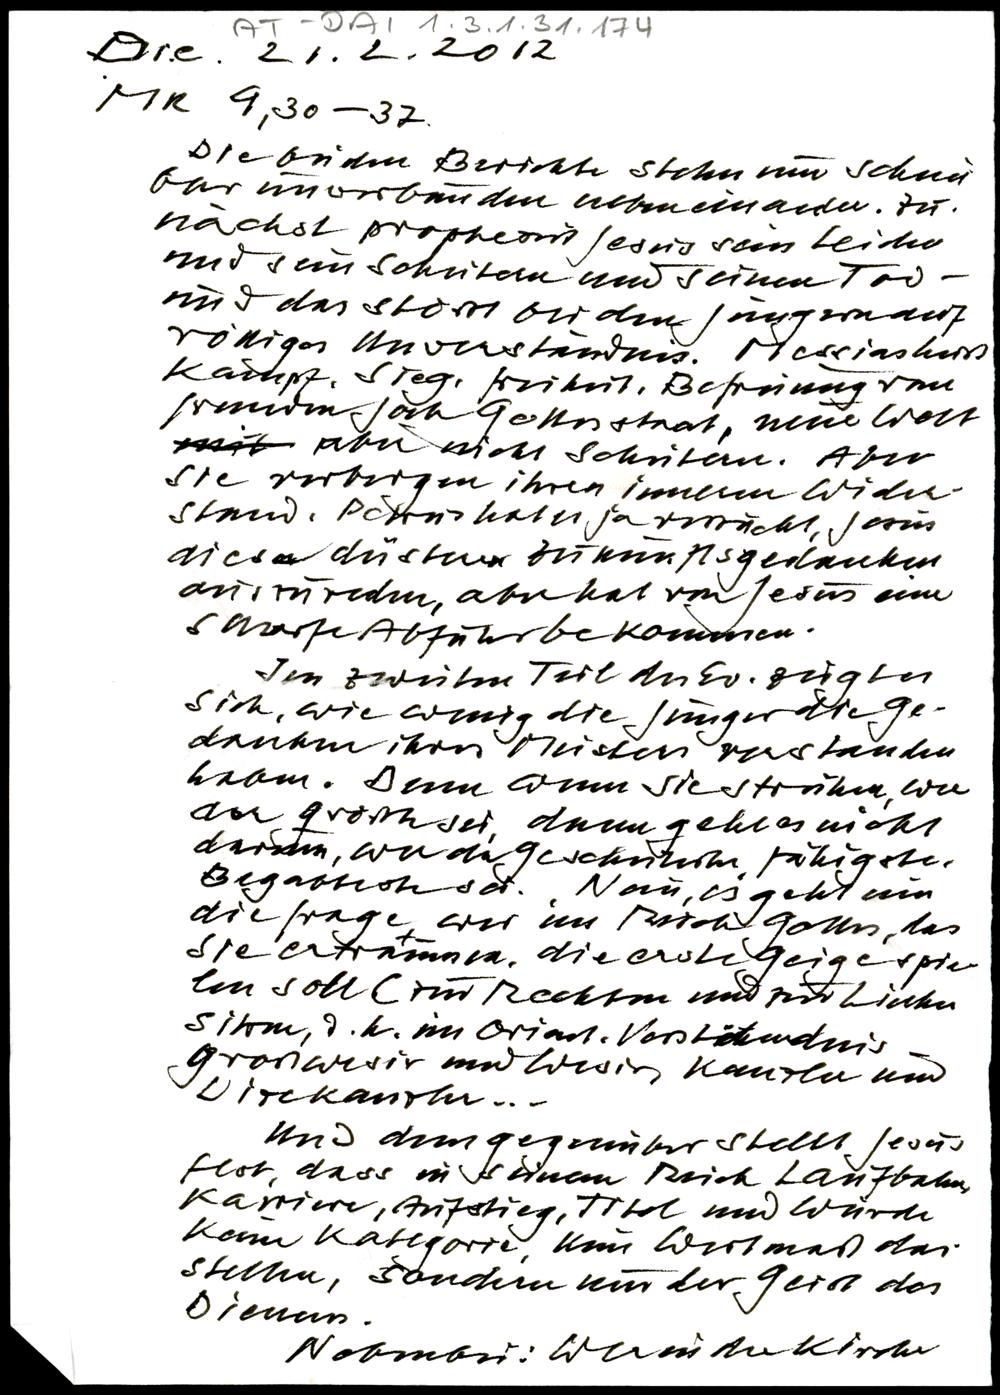 AT-DAI 1.3.1.31.174
Die. 21.2.2012
MK 9,30-37.
Die beiden Berichte stehn nur schein
bar unverbunden nebeneinander. Zu.
nächst prophezeit Jesus sein Leiden
und sein Scheitern und seinen Tod -
und das stösst bei den Jüngern auf
völliges Unverständnis. Messias heisst
Kampf, Sieg, Freiheit, Befreiung vom
fremden Joch Gottesstaat, neue Welt
mit aber nicht Scheitern. Aber
sie verbergen ihren inneren Wider-
stand. Petrus hat es ja versucht, Jesus
diese düstern Zukunftsgedanken
auszureden, aber hat von Jesus eine
scharfe Abfuhr bekommen.
Im zweiten Teil des Ev. zeigt es
sich, wie wenig die Jünger die Ge-
danken ihres Meisters verstanden
haben. Denn wenn sie streiten, wer
der grösste sei, dann geht es nicht
darum, wer der Gescheiteste, Fähigste,
Begabteste sei. Nein, es geht um
die Frage, wer im Reich Gottes, das
sie erträumen, die erste Geige spie
len soll (zur Rechten und zur Linken
sitzen, d.h. im Orient. Verständnis
Grosswesir und Wesir, Kanzler und
Vizekanzler...
Und demgegenüber stellt Jesus
fest, dass in seinem Reich Laufbahn,
Karriere, Aufstieg, Titel und Würde
keine Kategorie, kein Wertmass dar
stellen, sondern nur der Geist des
Dienens.
Nebenbei: Wer in der Kirche